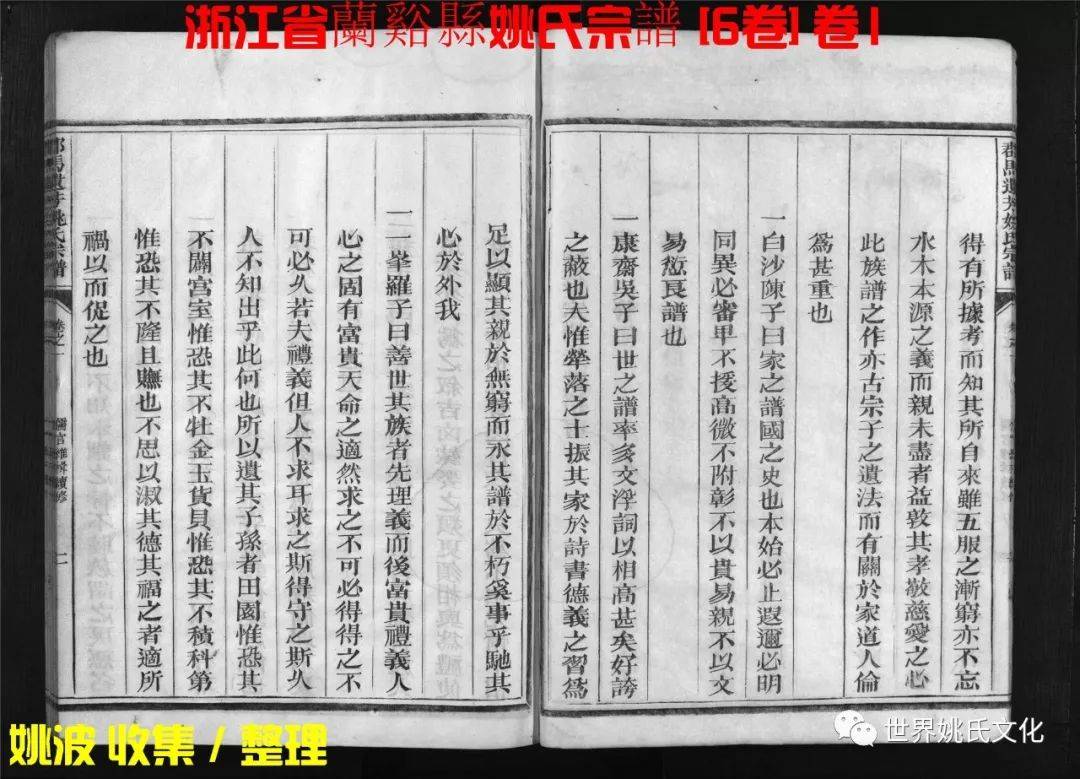 浙江省蘭谿縣姚氏宗譜 [6卷] 卷1
得有所據考而知其所自來雖五服之漸窮亦不忘
水木本源之義而親未盡者益敦其孝敬慈愛之心
此族譜之作亦古宗子之遺法而有關於家道人倫
爲甚重也
一白沙陳子曰家之譜國之史也本始必止遐邇必明
同異必審卑不援高微不附彰不以貴易親不以文
易愆良譜也
一康齋吳子曰世之譜率多文浮詞以相高甚矣好誇
之蔽也夫惟犖落之士振其家於詩書德義之習爲
足以顯其親於無窮而永其譜於不朽奚事乎馳其
必於外我
一一峯羅子曰善世其族者先理義而後富貴禮義人
心之固有富貴天命之適然求之不可必得得之不
可必久若夫禮義但人不求耳求之斯得守之斯久
人不知出乎此何也所以遺其子孫者田園惟恐其
不闢宮室惟恐其不壯金玉貨貝惟恐其不積科第
惟恐其不隆且赡也不思以淑其德其福之者適所
禍以而促之也
姚氏宗譜
卷之一
姚波 收集 / 整理
世界姚氏文化